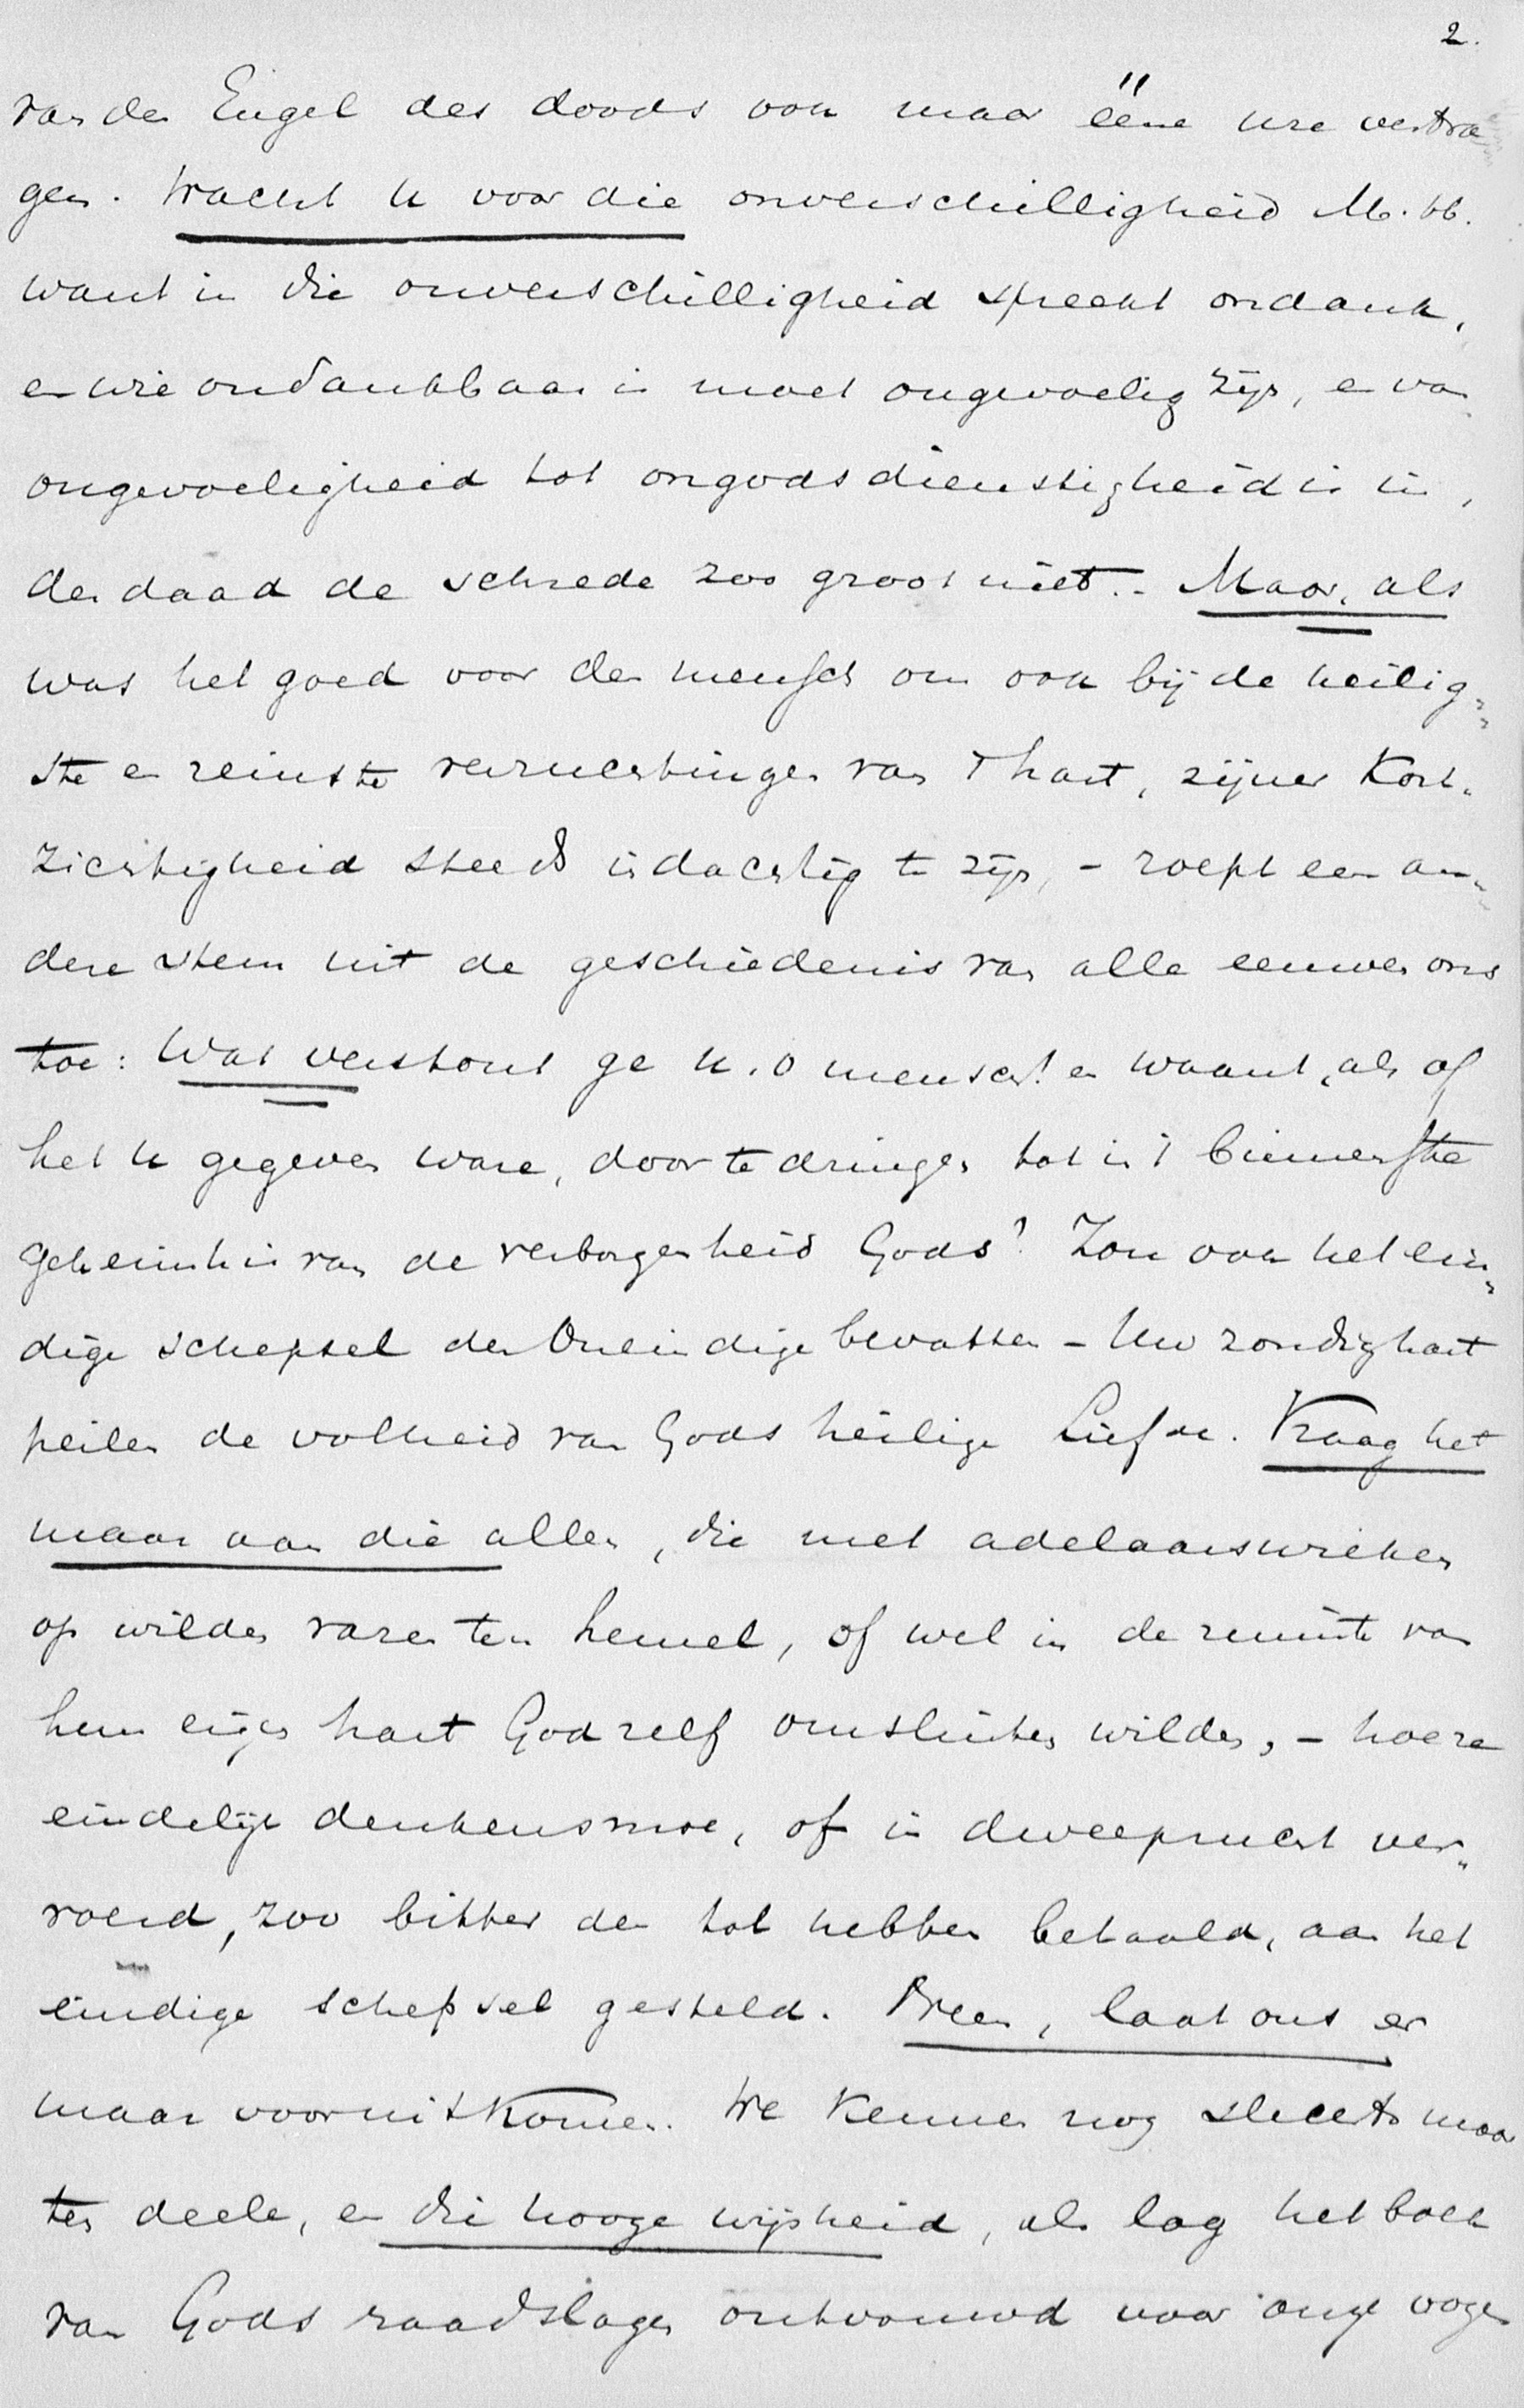 2.
van den Engel des doods ook maar ééne ure vertra
gen. Wacht U voor die onverschilligheid M. bb.
want in die onverschilligheid spreekt ondank,
en wie ondankbaar is moet ongevoelig zijn, en van
ongevoeligheid tot ongodsdienstigheid is in,
der daad de schrede zoo groot niet. - Maar, als
was het goed voor den mensch om ook bij de heilig„
ste en reinste verrukkingen van 't hart, zijner Kort„
zichtigheid steeds indachtig te zijn, - roept een an„
dere stem uit de geschiedenis van alle eeuwen ons
toe: Wat verstout ge U, o mensch! en waant, als of
het U gegeven ware, door te dringen tot in 't binnenste
geheimnis van de verborgenheid Gods? Zou ook het ein„
dige schepsel den Oneindige bevatten - Uw zondig hart
peilen de volheid van Gods heilige Liefde. Vraag het
maar aan die allen, die met adelaarswieken
op wilden varen ten hemel, of wel in de ruimte van
hun eigen hart God zelf omsluiten wilden, - hoe ze
eindelijk denkensmoe, of in dweepzucht ver„
voerd, zoo bitter den tol hebben betaald, aan het
eindige schepsel gesteld. Neen, laat ons er
maar vooruitkomen. We Kennen nog slechts maar
ten deele, en die hooge wijsheid, als lag het boek
van Gods raadslagen ontvouwd voor onze oogen